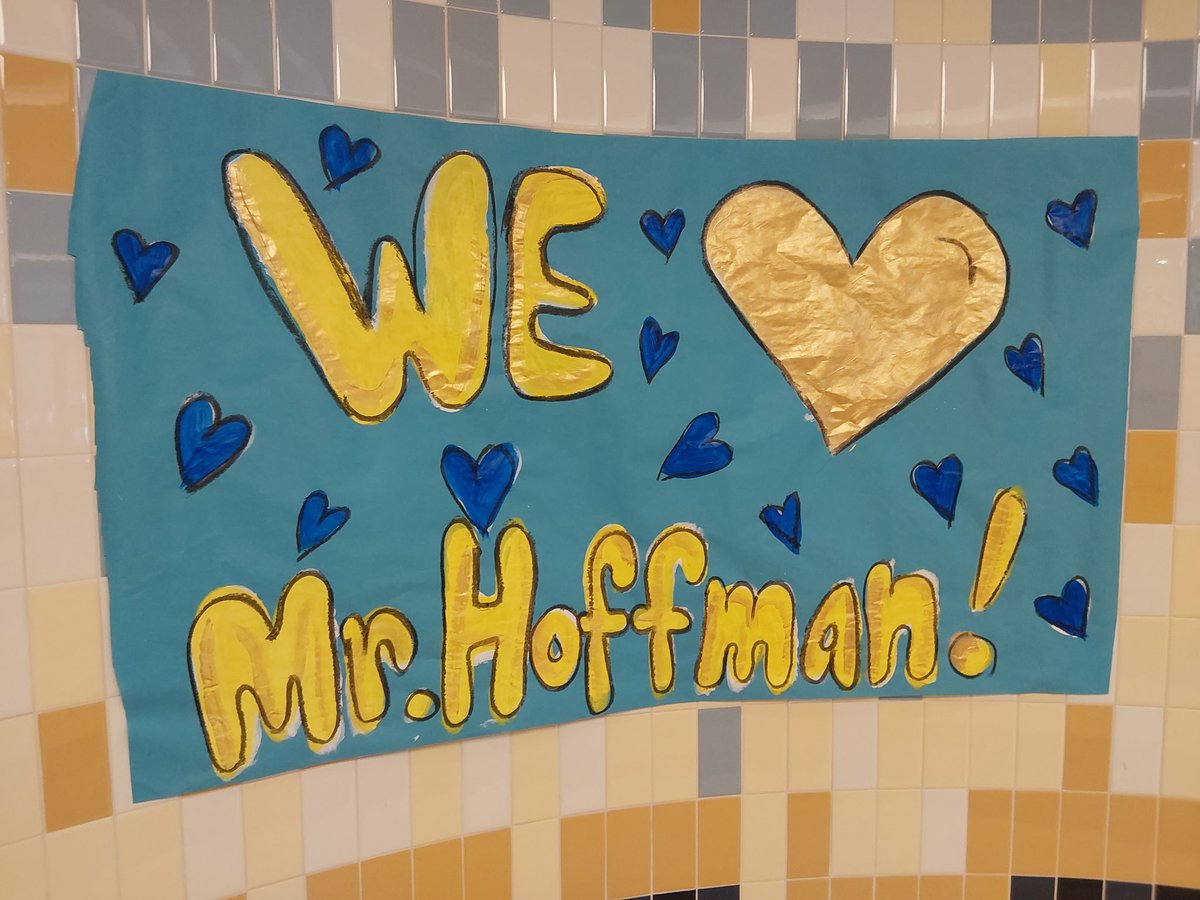 WE
Mr. Hoffman!